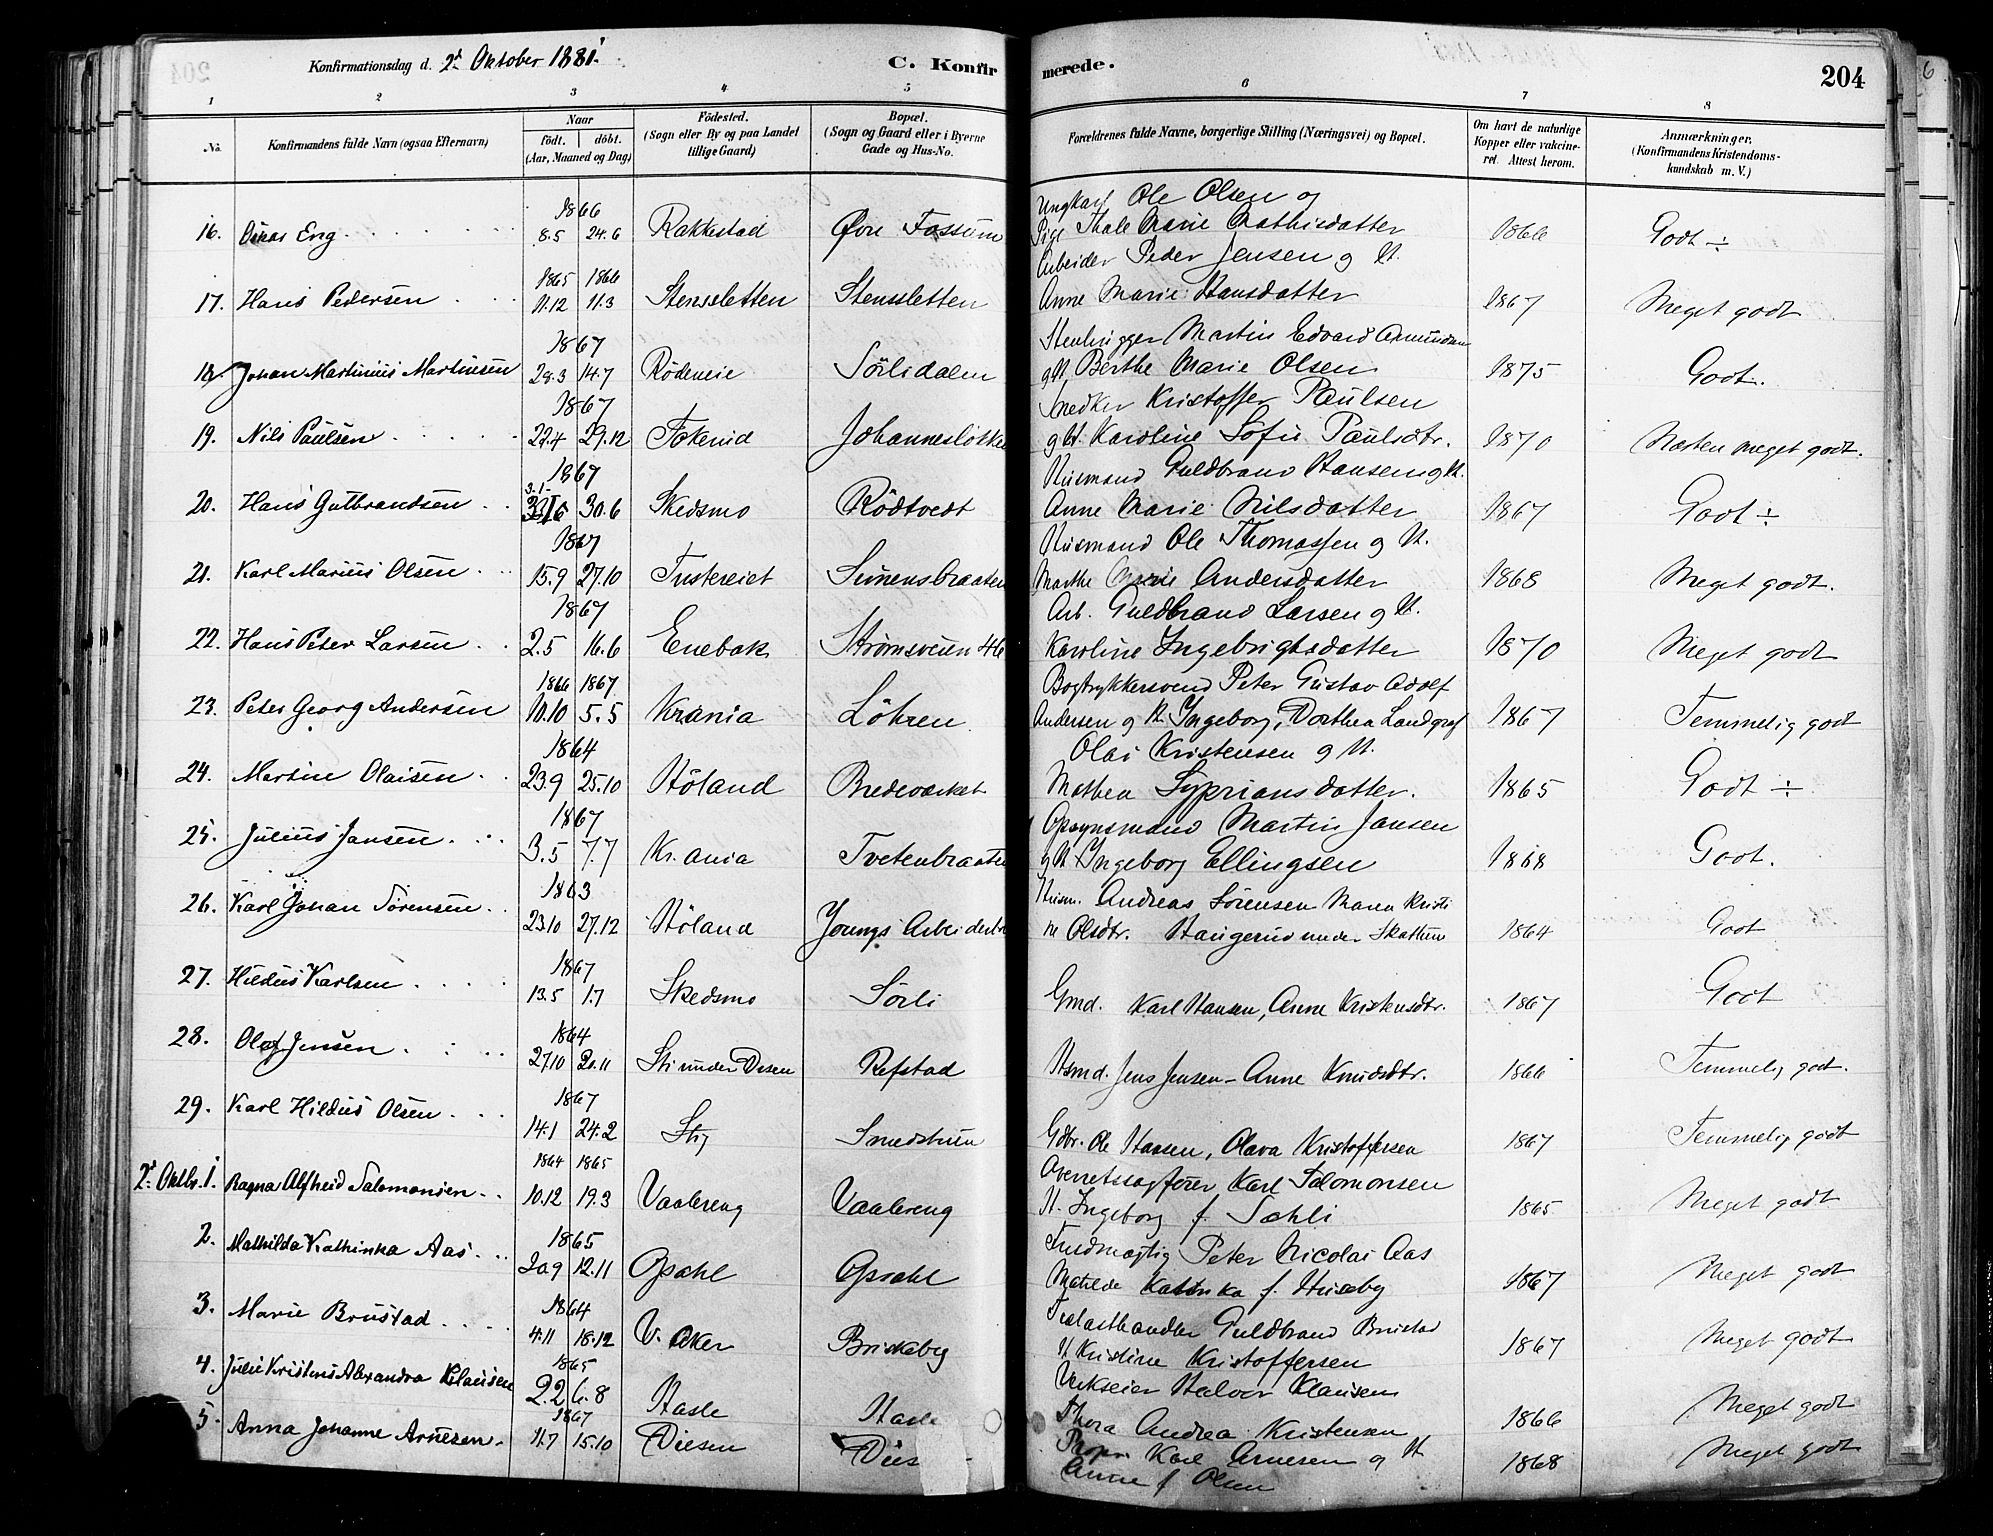 Konfirmationsdag d. 2d Oktober 1881.
C. Konfirmerede.
204
1 2 3 4 5 6 7 8
No.
Konfirmandens fulde Navn (ogsaa Efternavn)
Naar
født. døbt.
(Aar, Maaned og Dag)
Fødested.
(Sogn eller By og paa Landet
tillige Gaard)
Bopæl.
(Sogn og Gaard eller i Byerne
Gade og Hus-No.
Forældrenes fulde Navne, borgerlige Stilling (Næringsvei) og Bopæl.
Om havt de naturlige
Kopper eller vakcine-
ret. Attest herom.
Anmærkninger.
(Konfirmandens Kristendoms-
kundskab m. V.)
1866 Ungkarl Ole Olsen og
16. Oskar Eng 8.5 24.6 Rakkestad Øvre Fossum Pige Thale Marie Mathisdatter 1866 Godt ÷
1865 1866 Arbeider Peder Jensen og H.
17. Hans Pedersen 11.12 11.3 Stensletten Stensletten Anne Marie Hansdatter 1867 Meget godt
1867 Stenhugger Martin Edvard
18. Johan Martinius Martinsen 28.3 14.7 Rödeneie Sörlidalen og H. Berthe Marie Olsen 1875 Godt.
1867 Snedker Kristoffer Paulsen
19. Nils Paulsen 27.4 29.12 Fokerud Johannesløkke og H. Karoline Sofie Paulsdtr. 1870 Næsten meget godt.
1867 Husmand Guldbrand Hansen og H.
20. Hans Gulbrandsen 30.6 Skedsmo Rödtvedt Anne Marie Nilsdatter 1867 Godt ÷
1867 Husmand Ole Thomassen og H.
21. Karl Marius Olsen 15.9 27.10 Tustereiet Simensbraaten Marthe Marie Andersdatter 1868 Meget godt.
1867 Arb. Guldbrand Larsen og H.
22. Hans Peter Larsen 2.5 16.6 Enebak Strømsveien 46 Karoline Ingebrigtsdatter 1870 Meget godt
1866 1867 Bogtrykkersvend Peter Gustav Adolf
23. Peter Georg Andersen 10.10 5.5 Krania Löhren Andersen og H. Ingeborg Dorthea Landgraf 1867 Temmelig godt
1864 Olai Kristensen og H.
24. Martin Olaisen 23.9 25.10 Höland Bredeværket Mathea Sypriansdatter. 1865 Godt ÷
1867 Opsynsmand Martin Jansen
25. Julius Jansen 3.5 7.7 Kr.ania Tvetenbraaten og H. Ingeborg Ellingsen 1868 Godt.
1863 Husm. Andreas Sörensen Maren Kristi
26. Karl Johan Sørensen 23.10 27.12 Höland Youngs ne Olsdtr. Haugerud under Skattum 1864 Godt
1867
27. Hildus Karlsen 13.5 1.7 Skedsmo Sörli Gmd. Karl Hansen, Anne Kristensdtr. 1867 Godt
1864
28. Olaf Jensen 27.10 20.11 Sti under Disen Refstad Hsmd. Jens Jensen - Anne Knudsdtr. 1866 Temmelig godt.
1867
29. Karl Hildus Olsen 14.1 24.2 Sti Smedstuen Gdbr. Ole Hansen, Olava Kristoffersen 1867 Temmelig godt
1864 1865 Overretssagfører Karl Salomonsen
2d Oktbr. 1. Ragna Alfheid Salomonsen 10.12 19.3 Vaalereng Vaalereng H. Ingeborg f. Sæhli 1865 Meget godt
1865 Fuldmægtig Peter Nicolai Aas
2. Mathilda Kathinka Aas 20.9 12.11 Opsahl Opsahl Matilde Katinka f. Huseby 1867 Meget godt
1864 Trælasthandler Guldbrand Brustad
3. Marie Brustad 4.11 18.12 V. Aker Briskeby H. Kristine Kristoffersen 1867 Meget godt
1865 Værkseier Halvor Klausen
4. Julie Kristens Alexandra Klausen 2.2 6.8 Hasle Hasle Thora Andrea Kristensen 1866 Meget godt
1867 Propr. Karl Arnesen og H.
5. Anna Johanne Arnesen 11.7 15.10 Diesen Dies Anne f Olsen 1868 Meget godt